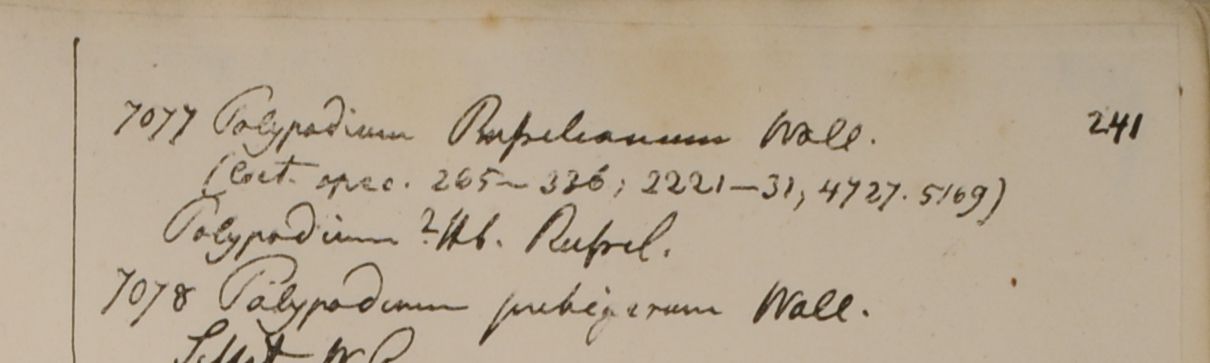 7077 Polypodium Russelianum Wall. 241
(Cat. spec. 265–336; 2221–31, 4727. 5169)
Polypodium ? Hb. Russel.
7078 Polypodium pubigerum Wall.